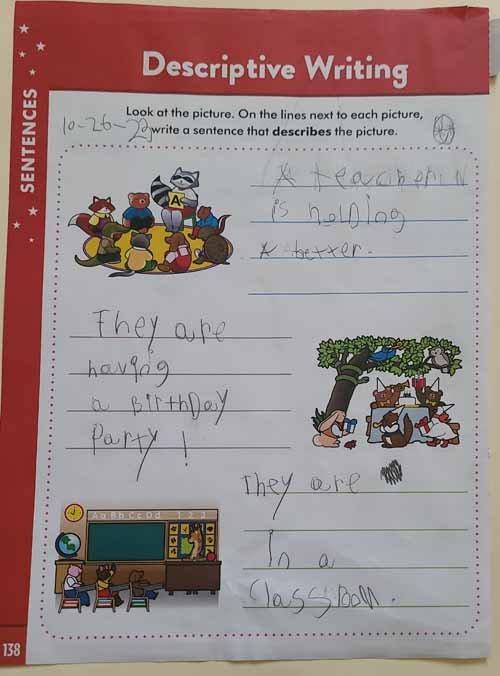 Descriptive Writing
SENTENCES
Look at the picture. On the lines next to each picture,
write a sentence that describes the picture.
A
A
is holding
A
They are
having
a BirthDay
Party!
They are
Aa Bb Cc Dd 1 2 3
in a
138